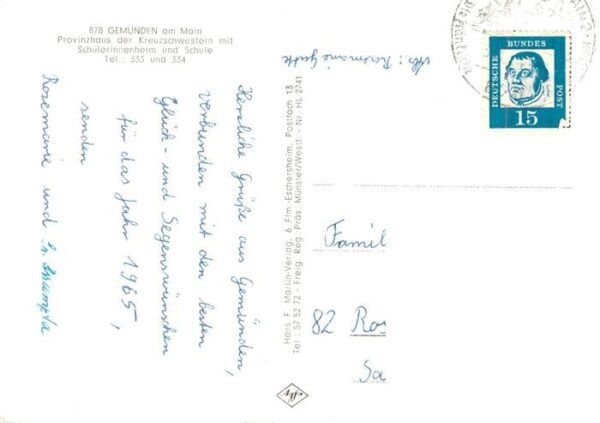 878 GEMÜNDEN am Main
Provinzhaus der Kreuzschwestern mit
Schülerinnenheim und Schule
Tel.: 333 und 334
Herzliche Grüße aus Gemünden,
verbunden mit den besten
Glück- und Segenswünschen
für das Jahr 1965,
senden
Rosemarie und
Hans F. Martin-Verlag, 6 Ffm.-Eschersheim, Postfach 13
Tel.: 57 52 72 - Freig. Reg. Präs. Münster/Westf. - Nr. HL 2741
Abs.: Rosemarie
DEUTSCHE BUNDES POST
15
Famil
82 Ros
Sa